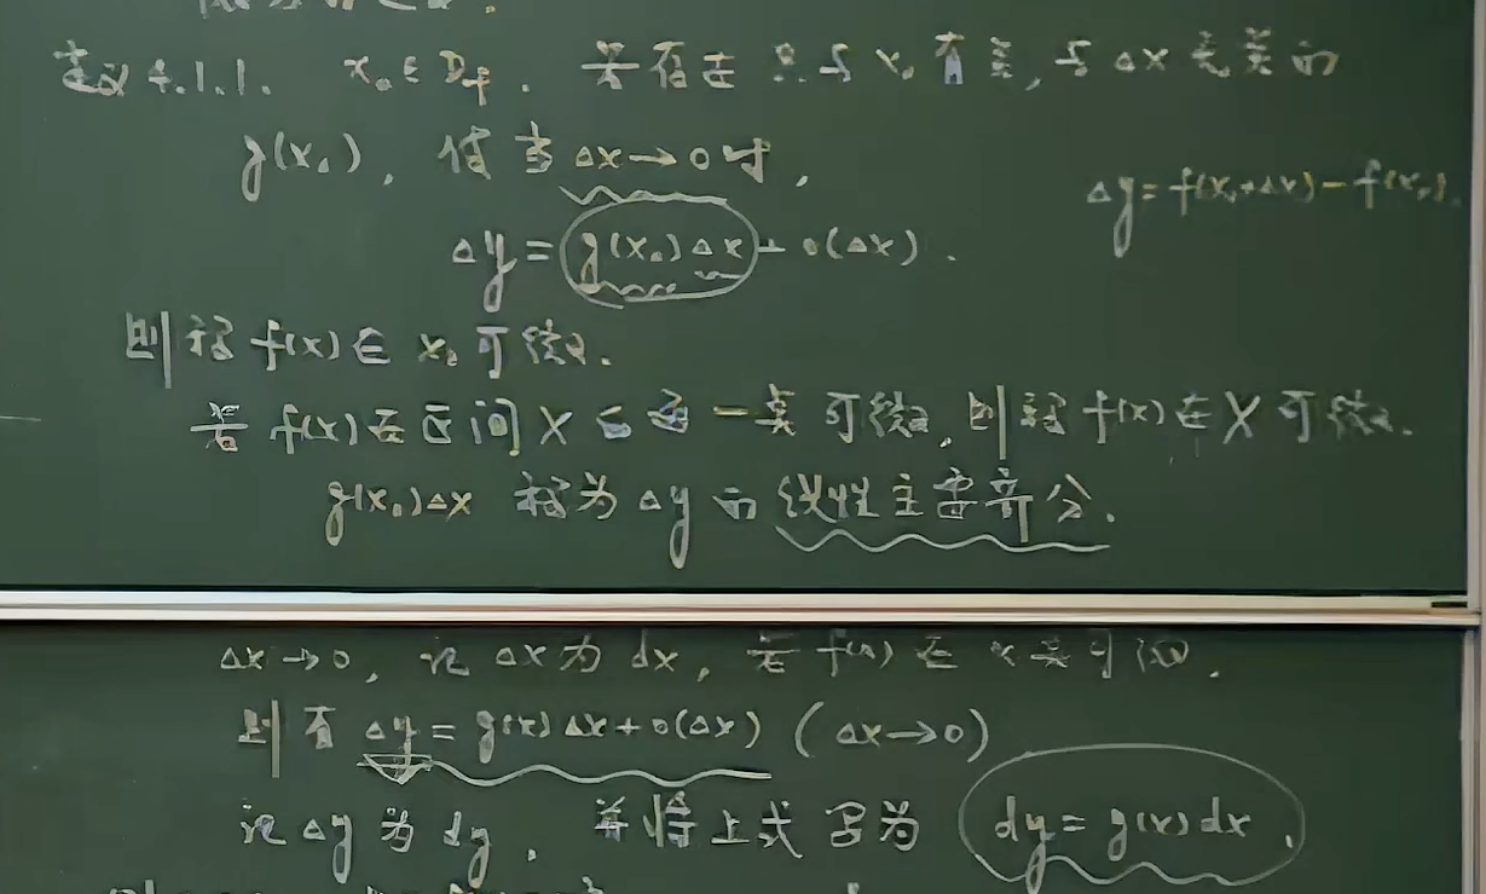 定义4.1.1. x₀∈D_f. 若存在只与x₀有关,与Δx无关的
g(x₀), 使当Δx→0时,
Δy=f(x₀+Δx)-f(x₀).
Δy=g(x₀)Δx+o(Δx).
则称f(x)在x₀可微.
若f(x)在区间X上每一点可微,则称f(x)在X可微.
g(x₀)Δx 称为Δy的线性主要部分.
Δx→0, 记Δx为dx, 若f(x)在x点可微.
则有Δy=g(x)Δx+o(Δx) (Δx→0)
记Δy为dy. 并将上式写为 dy=g(x)dx.